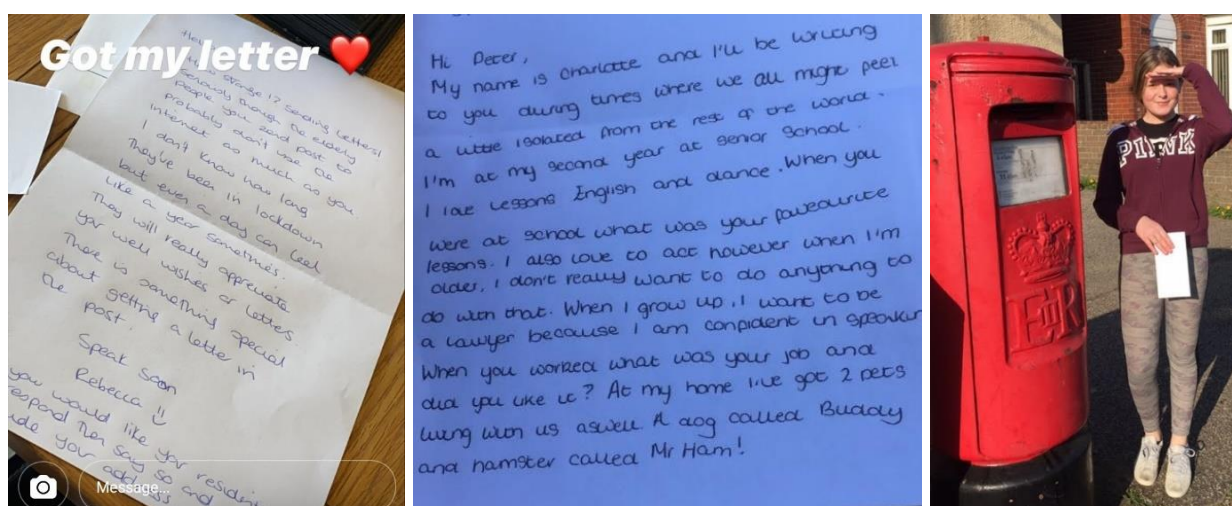 Got my letter ❤️
Hey
strange!? Sending letters!
Seriously though the elderly
people you send post to
probably don't use the
internet as much as you.
I don't know how long
They've been in lockdown
but even a day can feel
like a year sometimes.
They will really appreciate
your well wishes or letters.
There is something special
about getting a letter in
the post.
Speak soon
Rebecca
you would like your resident
respond then say so and
your address
Message...
Hi Peter,
My name is Charlotte and I'll be writing
to you during times where we all might feel
a little isolated from the rest of the world.
I'm at my second year at senior school.
I love lessons English and dance. When you
were at school what was your favourite
lessons. I also love to act however when I'm
older, I don't really want to do anything to
do with that. When I grow up, I want to be
a lawyer because I am confident in speaking
When you worked what was your job and
did you like it? At my home I've got 2 pets
living with us aswell A dog called Buddy
and hamster called Mr Ham!
PINK
E II R